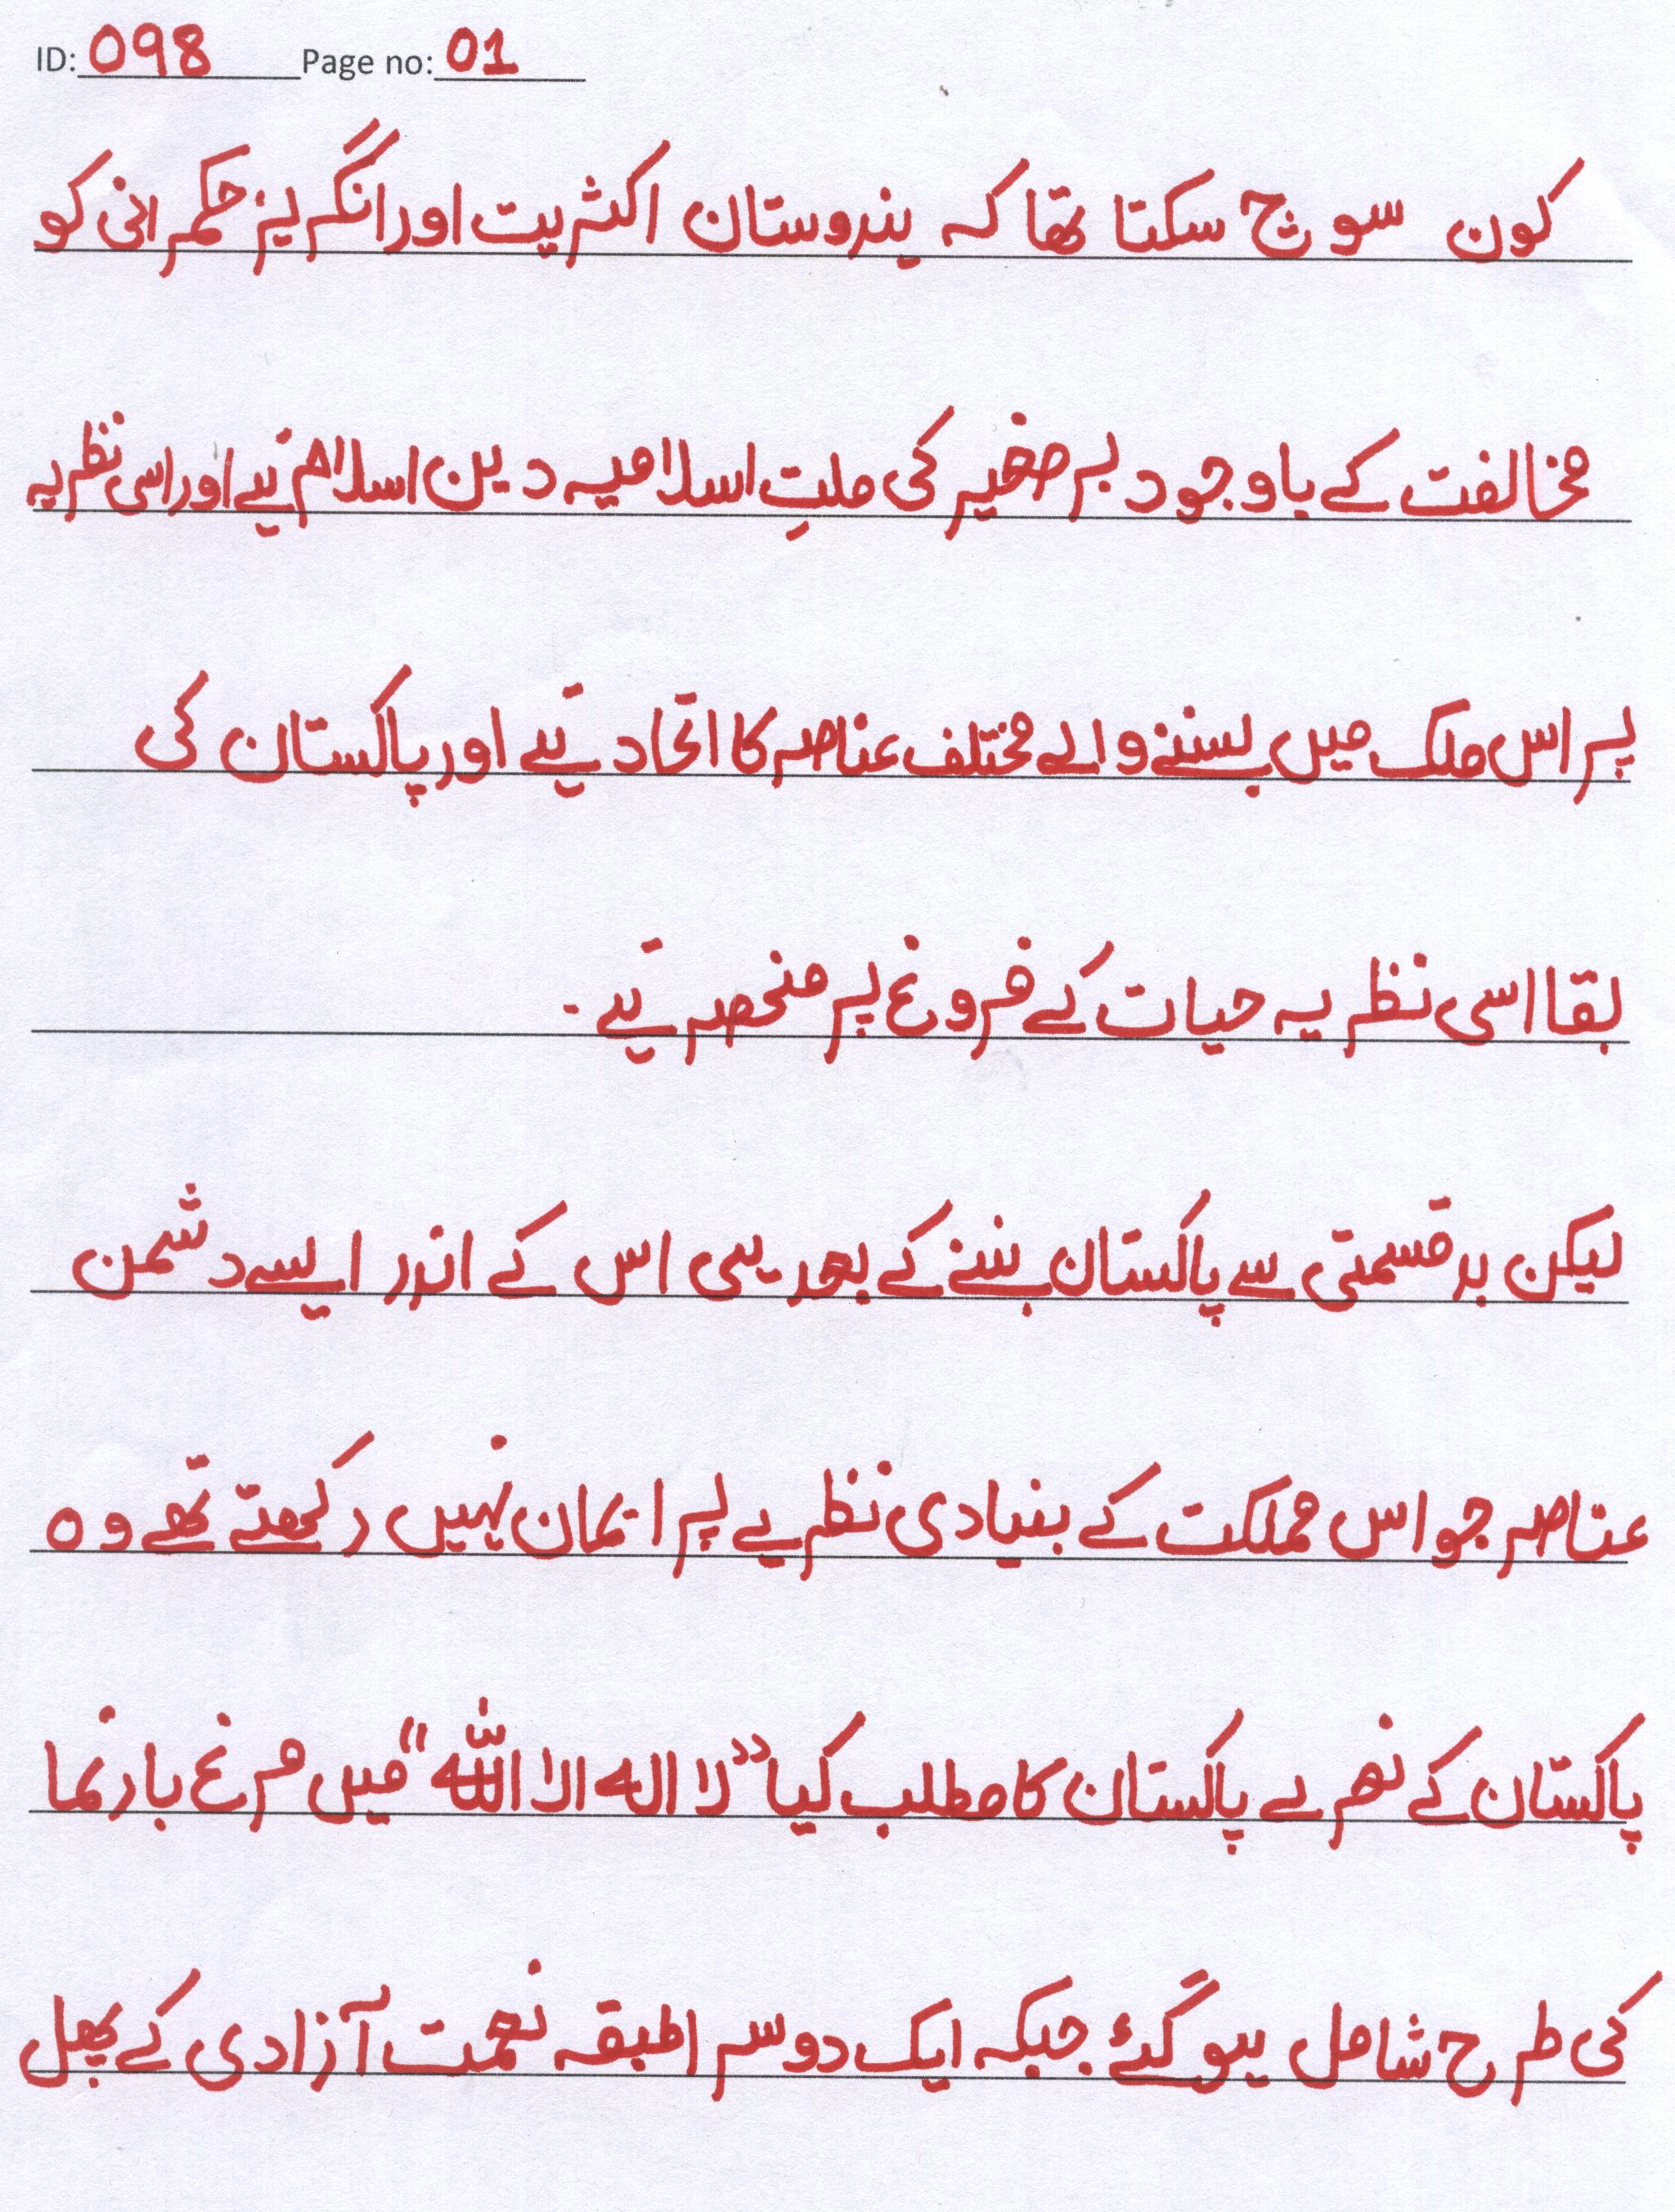 ID: 098 Page no: 01
کون سوچ سکتا تھا کہ ہندوستان اکثریت اور انگریز حکمرانی کو
مخالفت کے باوجود برصغیر کی ملتِ اسلامیہ دین اسلام ہے اور اسی نظریہ
پر اس ملک میں بسنے والے مختلف عناصر کا اتحاد ہے اور پاکستان کی
بقا اسی نظریہ حیات کے فروغ پر منحصر ہے۔
لیکن بدقسمتی سے پاکستان بننے کے بعد ہی اس کے اندر ایسے دشمن
عناصر جو اس مملکت کے بنیادی نظریے پر ایمان نہیں رکھتے تھے وہ
پاکستان کے نعرے پاکستان کا مطلب کیا "لا الہ الا اللہ" میں مرغ بادنما
کی طرح شامل ہوگئے جبکہ ایک دوسرا طبقہ نعمت آزادی کے پھل